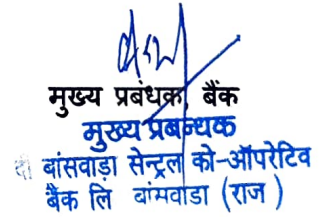 मुख्य प्रबंधक, बैंक
मुख्य प्रबन्धक
दी बांसवाड़ा सेन्ट्रल को-ऑपरेटिव
बैंक लि बांसवाडा (राज)